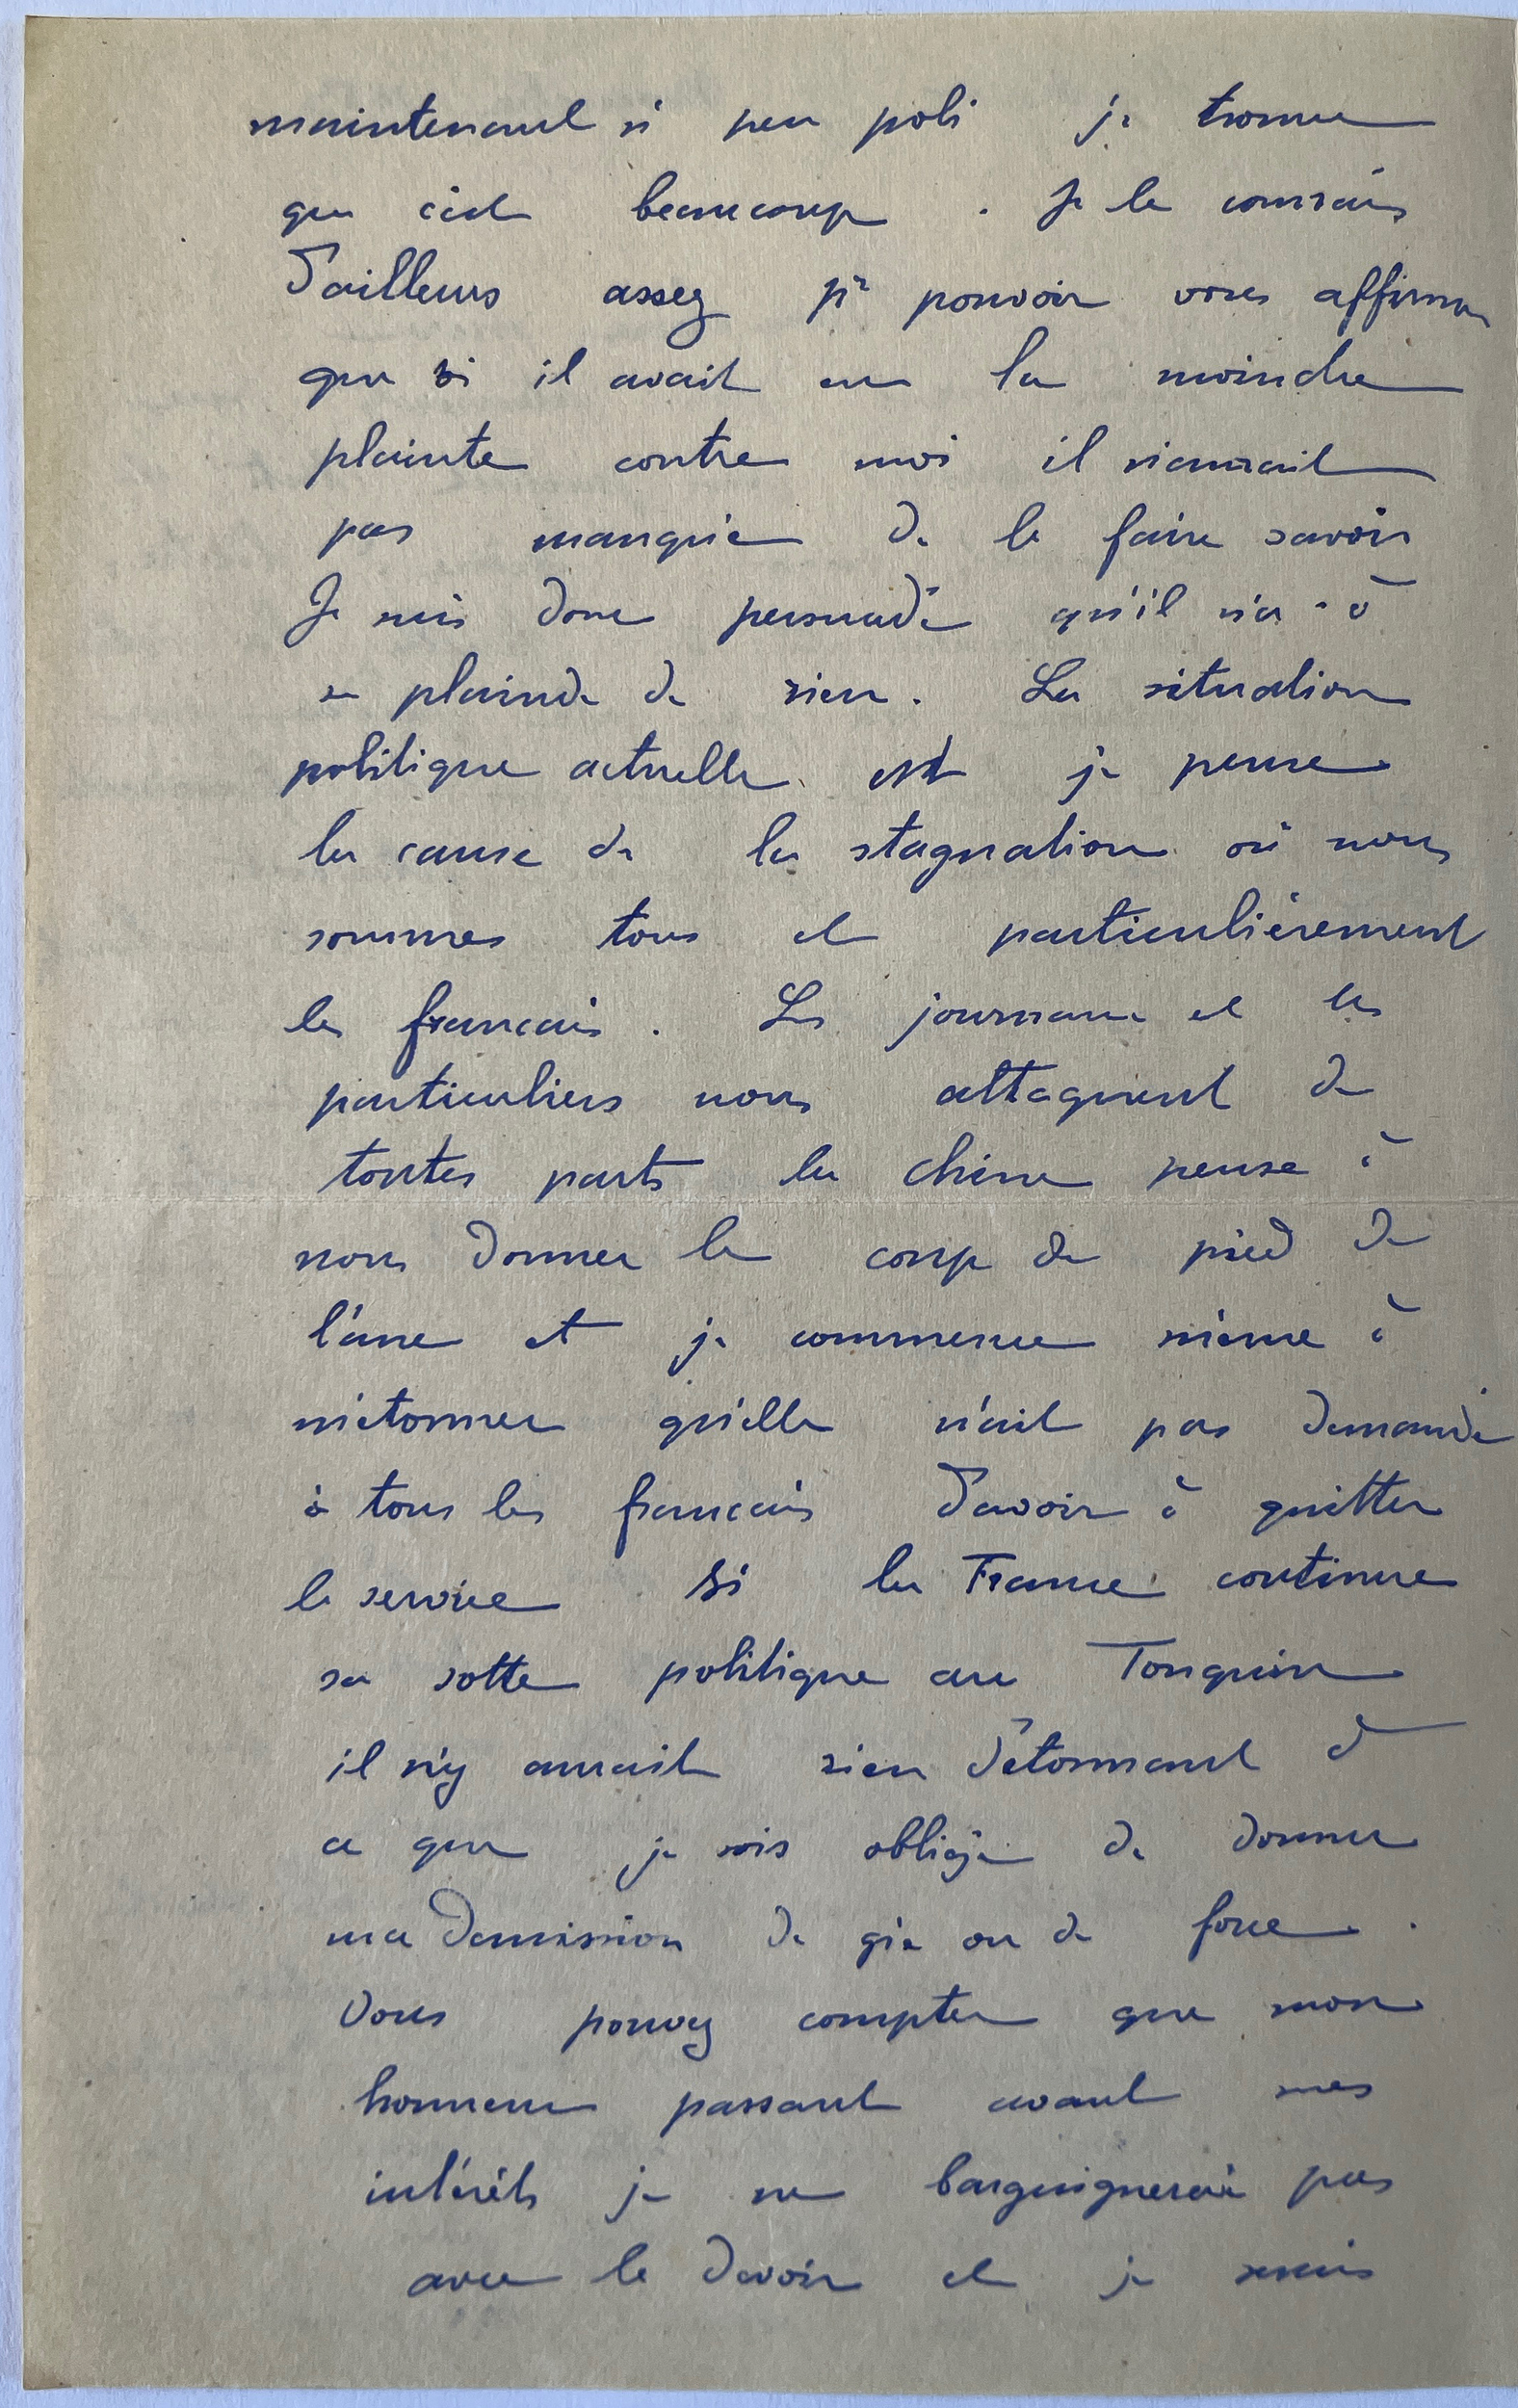 maintenant si peu poli je trouve
que c'est beaucoup . Je le connais
d'ailleurs assez pr pouvoir vous affirmer
que si il avait eu la moindre
plainte contre moi il n'aurait
pas manqué de le faire savoir
Je suis donc persuadé qu'il n'a à
se plaindre de rien . La situation
politique actuelle est je pense
la cause de la stagnation où nous
sommes tous et particulièrement
les francais . Les journaux et les
particuliers nous attaquent de
toutes parts la chine pense à
nous donner le coup de pied de
l'ane et je commence même à
m'étonner qu'elle n'ait pas demandé
à tous les francais d'avoir à quitter
le service si la France continue
sa sotte politique au Tonquin
il n'y aurait rien d'étonnant à
ce que je sois obligé de donner
ma démission de gré ou de force .
Vous pouvez compter que mon
honneur passant avant mes
intérêts je ne barguignerai pas
avec le devoir et je serais